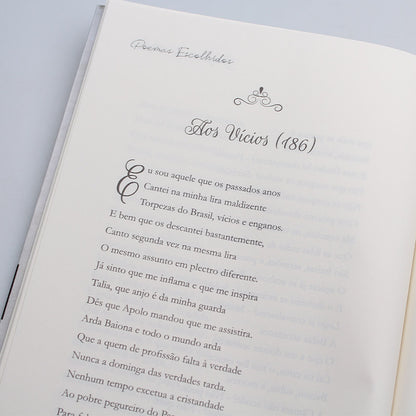 Poemas Escolhidos
Aos Vícios (186)
Eu sou aquele que os passados anos
Cantei na minha lira maldizente
Torpezas do Brasil, vícios e enganos.
E bem que os descantei bastantemente,
Canto segunda vez na mesma lira
O mesmo assunto em plectro diferente.
Já sinto que me inflama e que me inspira
Talia, que anjo é da minha guarda
Dês que Apolo mandou que me assistira.
Arda Baiona e todo o mundo arda
Que a quem de profissão falta à verdade
Nunca a dominga das verdades tarda.
Nenhum tempo excetua a cristandade
Ao pobre pegureiro do
Para